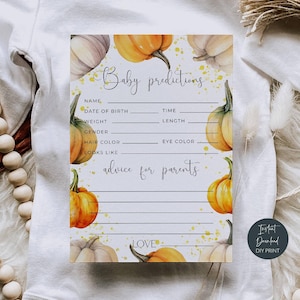 Baby predictions
NAME
DATE OF BIRTH TIME
WEIGHT LENGTH
GENDER
HAIR COLOR EYE COLOR
LOOKS LIKE
advice for parents
LOVE
Instant
Download
DIY PRINT